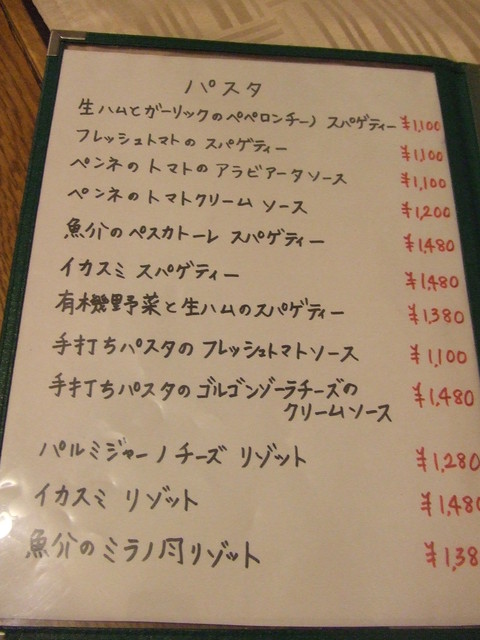 パスタ
生ハムとガーリックのペペロンチーノ スパゲティー ¥1,100
フレッシュトマトの スパゲティー ¥1,100
ペンネの トマトの アラビアータソース ¥1,100
ペンネの トマトクリーム ソース ¥1,200
魚介の ペスカトーレ スパゲティー ¥1,480
イカスミ スパゲティー ¥1,480
有機野菜と生ハムのスパゲティー ¥1,380
手打ちパスタの フレッシュトマトソース ¥1,100
手打ちパスタの ゴルゴンゾーラチーズの ¥1,480
クリームソース
パルミジャーノチーズ リゾット ¥1,280
イカスミ リゾット ¥1,480
魚介の ミラノ風リゾット ¥1,38